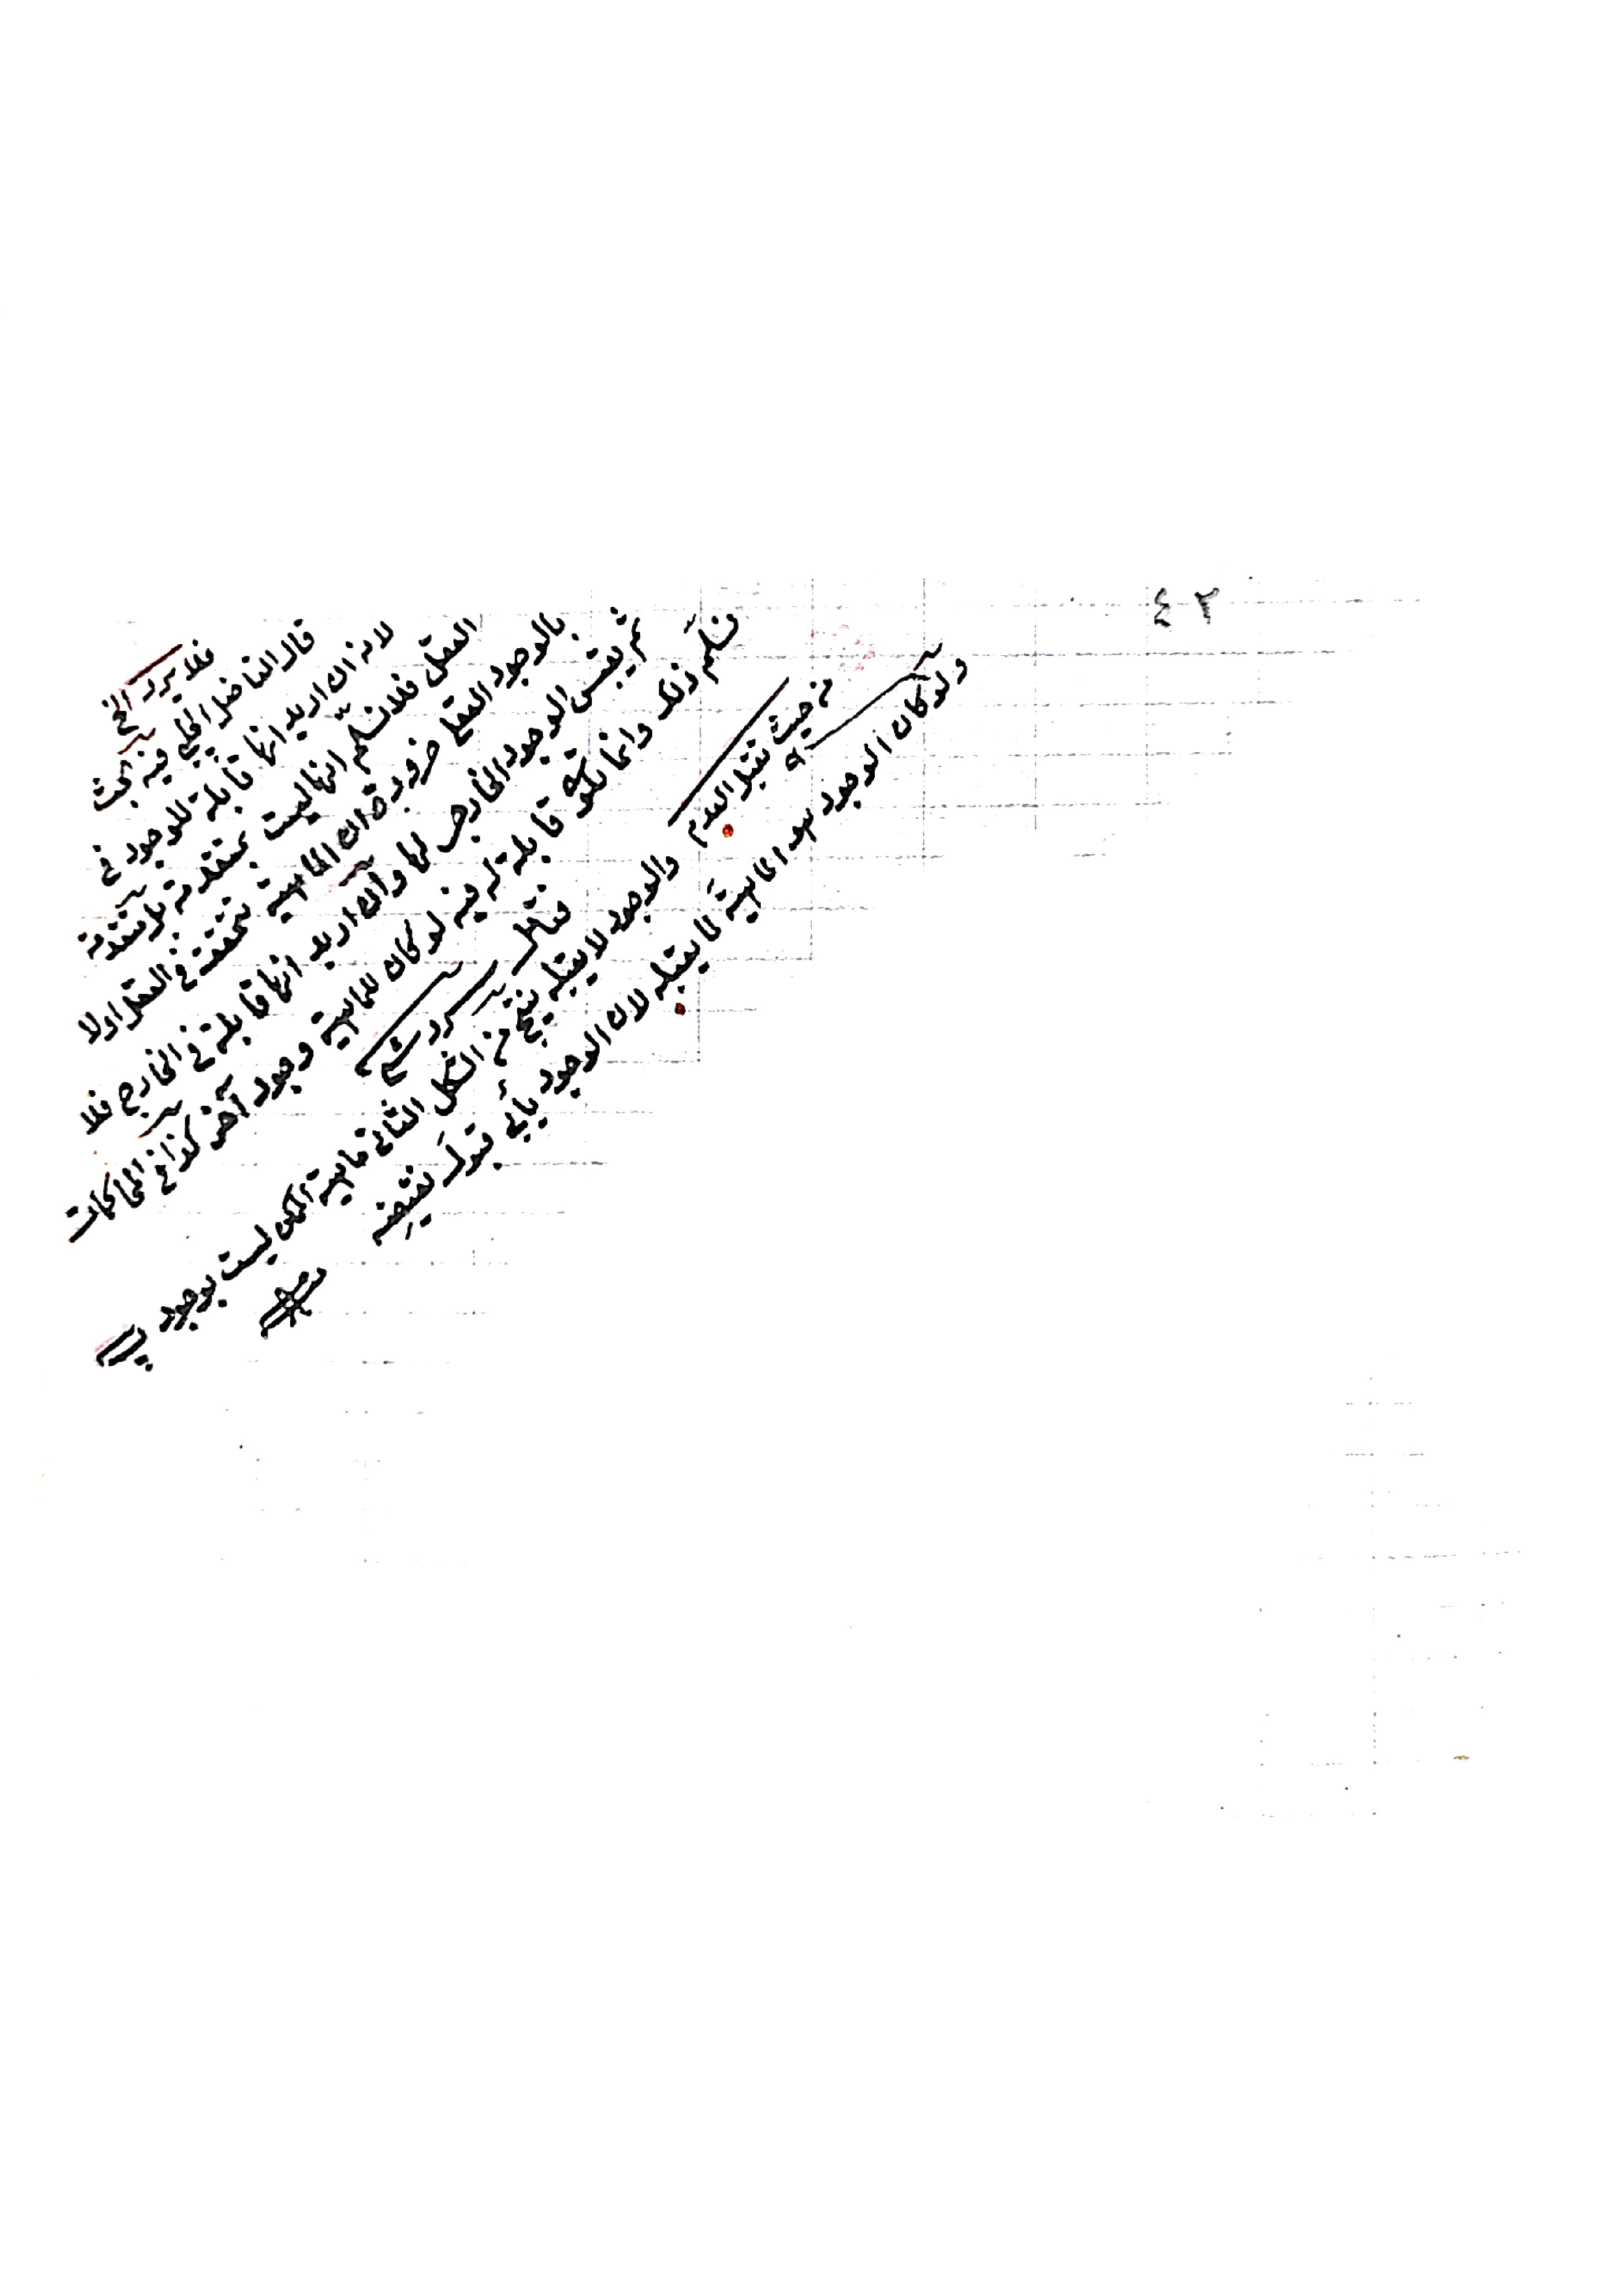 ٤٢
فلا يرد الخ
قال الفاضل المحشي فيه بحث
لانه ان اريد انها قابلة للوجود في
العقل فلانسلم انها ليست متقررة بل متقررة
بالوجود العقلي ضرورة ان الماهية تحققت في العقل اولا
ثم يقتبس الوجود الخارجي لها وان اريد انها قابلة في الخارج فلا
نسلم ذلك وانما تكون قابلة له فيه لو كان للماهية وجود آخر كذا في المحاكمات
فتأمل
من حيث تقبل العدم
والوجود لا يقبله ينتج من الشكل الثاني ماهية الممكن ليست بوجود
ولو كان الوجود هو الماهية لما يقبله لان الوجود يأبى قبول نقيضه